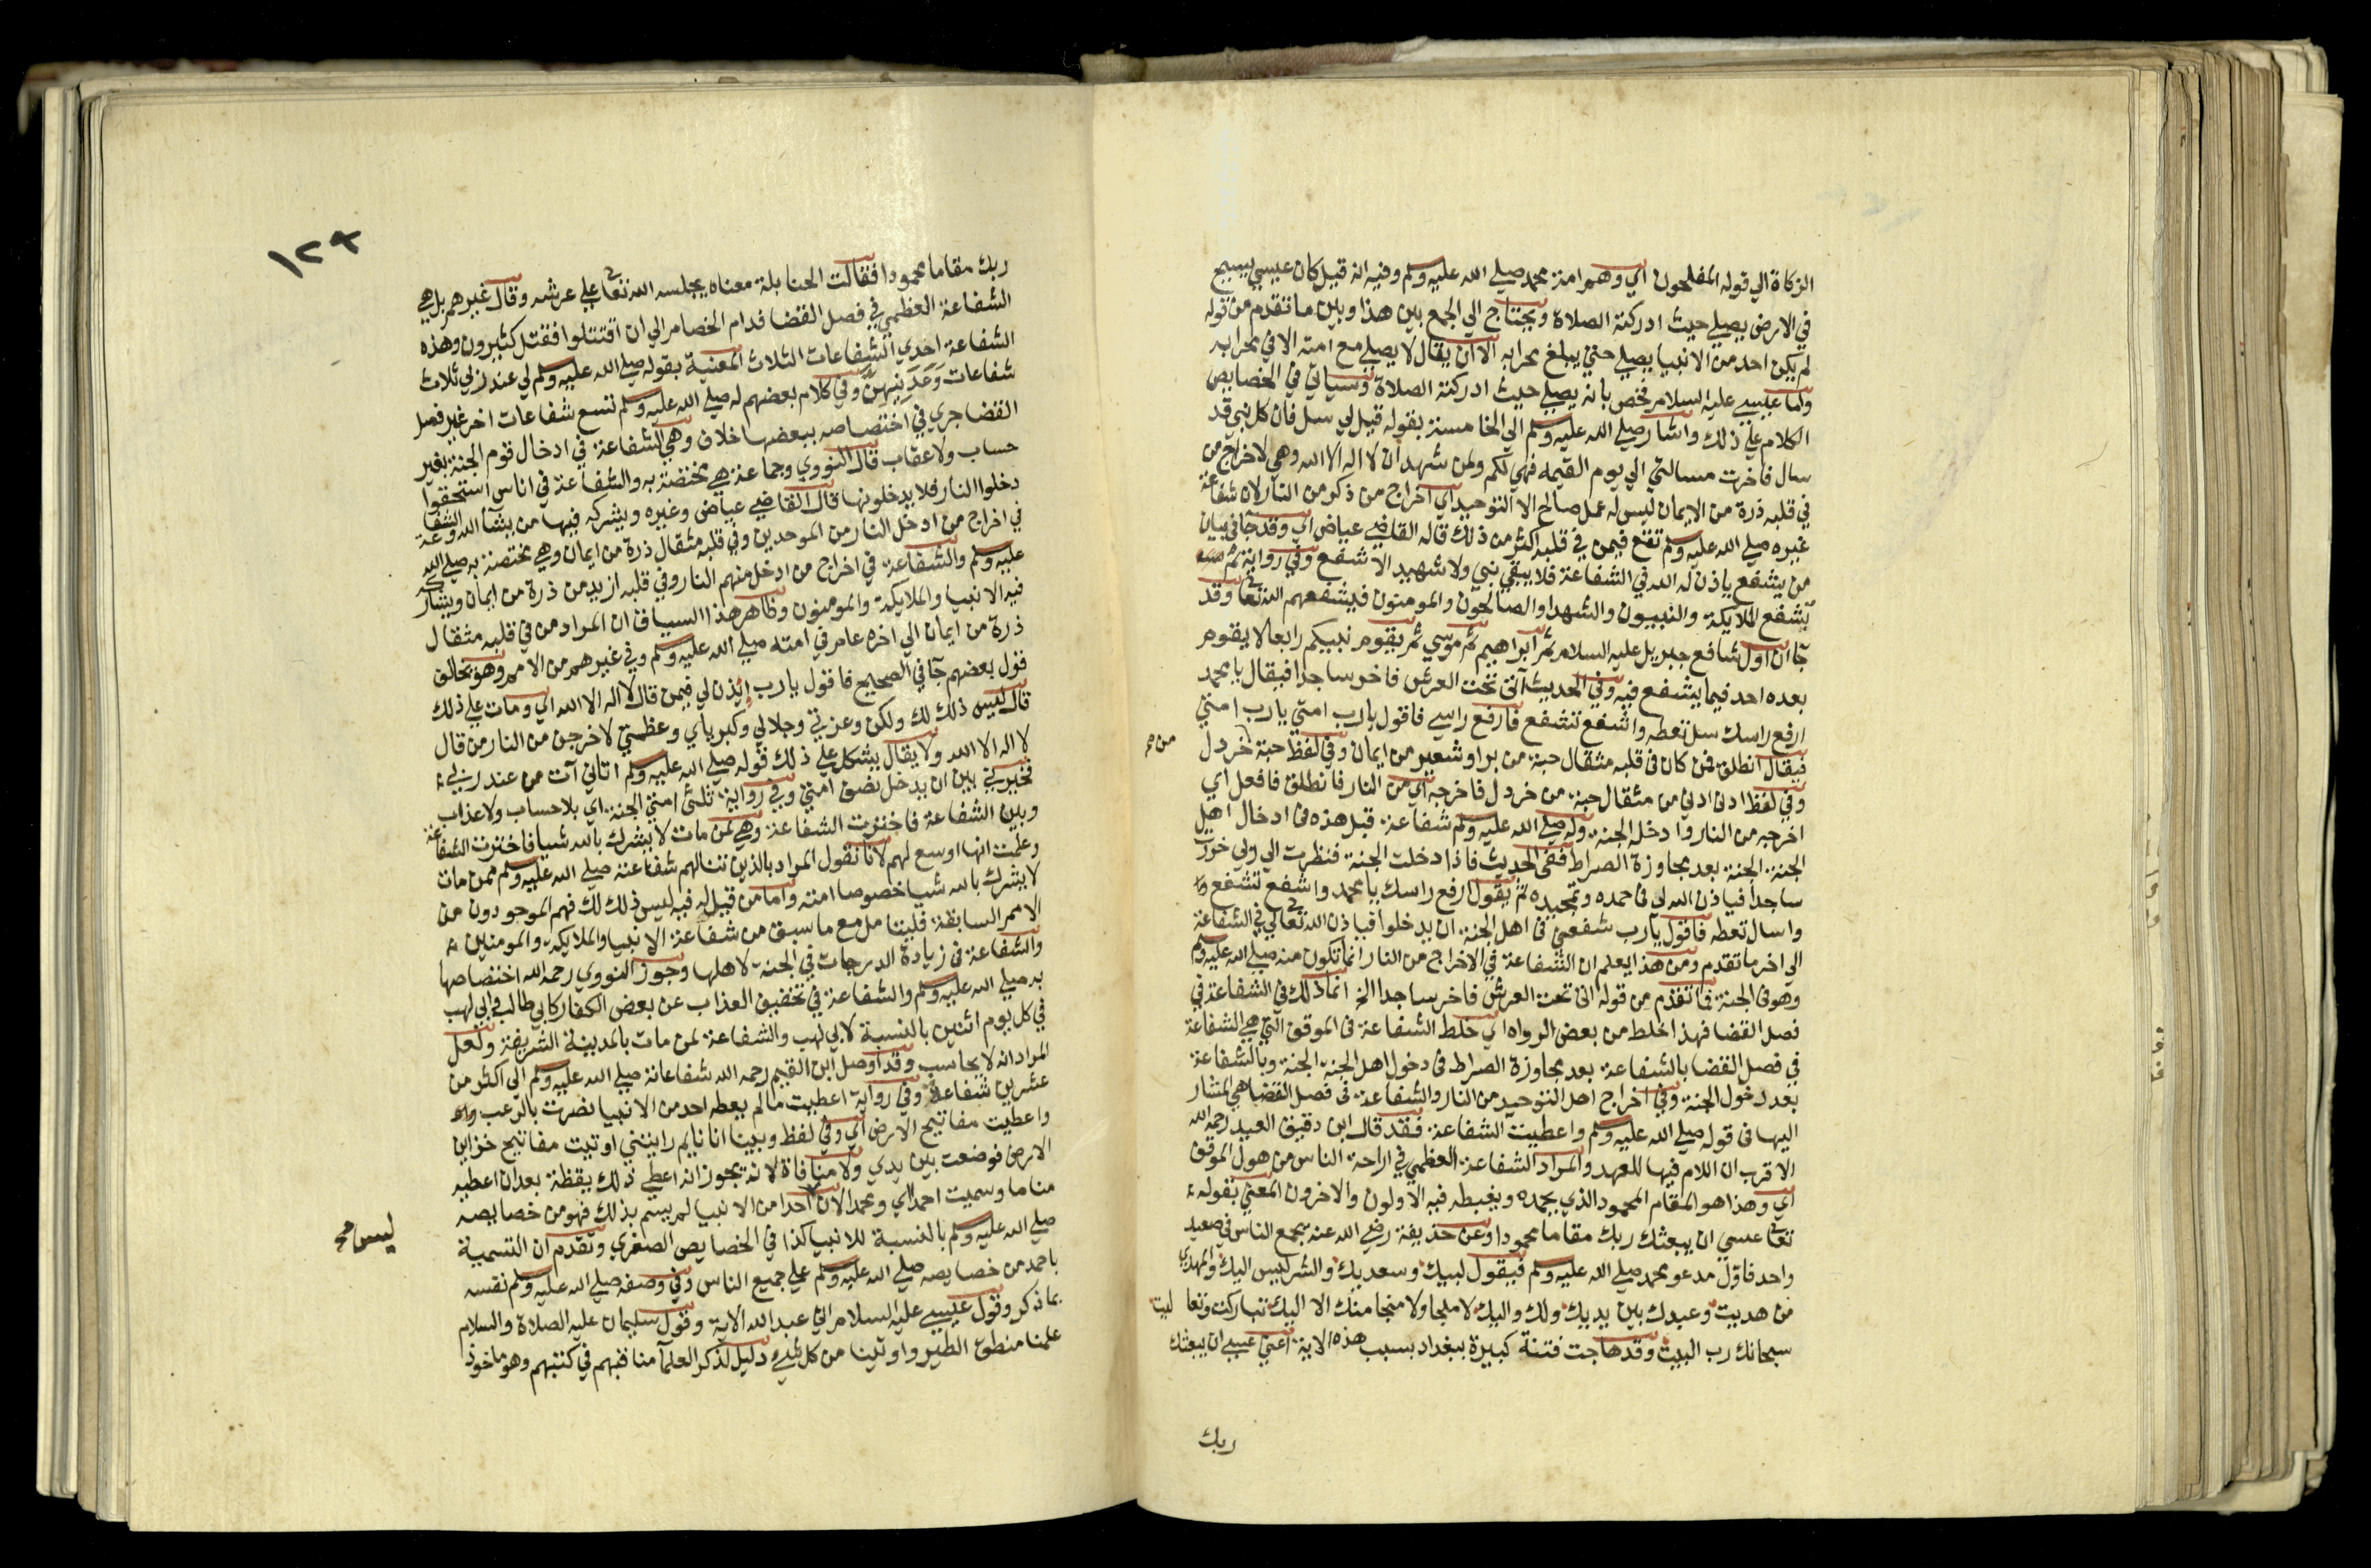 الزكاة الي قوله المفلحون اي وهم امة محمد صلي الله عليه وسلم وفيه انه قيل كان عيسي يسيح
في الارض يصلي حيث ادركته الصلاة ويحتاج الي الجمع بين هذا وبين ما تقدم من قوله
لم يكن احد من الانبيا يصلي حتي يبلغ محرابه الا ان يقال لا يصلي مع امته الا في محرابه
واما عيسي عليه السلام فخص بانه يصلي حيث ادركته الصلاة وسياتي في الخصايص
الكلام علي ذلك واشار صلي الله عليه وسلم الي الخامسة بقوله قيل لي سل فان كل نبي قد
سال فاخرت مسالتي الي يوم القيمه فهي لكم ولمن شهد ان لا اله الا الله وهي لاخراج من
في قلبه ذرة من الايمان ليس له عمل صالح الا التوحيد اي اخراج من ذكر من النار لان شفاعة
غيره صلي الله عليه وسلم تقع فيمن في قلبه اكثر من ذلك قاله القاضي عياض اي وقد جا في بيان
من يشفع ياذن له الله في الشفاعة فلا يبقي نبي ولا شهيد الا شفع وفي رواية ثم
تشفع الملايكة والنبيون والشهدا والصالحون والمومنون فيشفعهم الله تعا وقد
جا ان اول شافع جبريل عليه السلام ثم ابراهيم ثم موسي ثم يقوم نبيكم رابعا لا يقوم
بعده احد فيما يشفع فيه وفي الحديث اتي تحت العرش فاخر ساجدا فيقال يا محمد
ارفع راسك سل تعطه واشفع تشفع فارفع راسي فاقول يارب امتي يارب امتي
فيقال انطلق فمن كان في قلبه مثقال حبة من بر او شعير من ايمان وفي لفظ حبة خردل
وفي لفظ ادنى ادنى من مثقال حبة من خردل فاخرجه اي من النار فانطلق فافعل اي
اخرجه من النار وادخله الجنة وله صلي الله عليه وسلم شفاعة قبل هذه في ادخال اهل
الجنة الجنة بعد مجاوزة الصراط ففي الحديث فاذا دخلت الجنة فنظرت الي ربي خررت
ساجدا فياذن الله لي في حمده وتمجيده ثم يقول ارفع راسك يا محمد واشفع تشفع
واسال تعطه فاقول يارب شفعني في اهل الجنة ان يدخلوا فياذن الله تعالي في الشفاعة
الي اخر ما تقدم ومن هذا يعلم ان الشفاعة في الاخراج من النار انما تكون منه صلي الله عليه وسلم
وهو في الجنة فما تقدم من قوله اتي تحت العرش فاخر ساجدا الخ انما ذلك في الشفاعة في
فصل القضا فهذا خلط من بعض الرواه اي خلط الشفاعة في الموقف التي هي الشفاعة
في فصل القضا بالشفاعة بعد مجاوزة الصراط في دخول اهل الجنة الجنة وبالشفاعة
بعد دخول الجنة وفي اخراج اهل التوحيد من النار والشفاعة في فصل القضا هي المشار
اليها في قوله صلي الله عليه وسلم واعطيت الشفاعة فقد قال ابن دقيق العيد رحمه الله
الاقرب ان اللام فيها للعهد والمراد الشفاعة العظمي في اراحة الناس من هول الموقف
اي وهذا هو المقام المحمود الذي يحمده ويغبطه فيه الاولون والاخرون المعني بقوله
تعا عسي ان يبعثك ربك مقاما محمودا وعن حذيفة رضي الله عنه يجمع الناس في صعيد
واحد فاول مدعو محمد صلي الله عليه وسلم فيقول لبيك وسعديك والشر ليس اليك والمهدي
من هديت وعبدك بين يديك ولك واليك لا ملجا ولا منجا منك الا اليك تباركت وتعاليت
سبحانك رب البيت وقد هاجت فتنة كبيرة ببغداد بسبب هذه الاية اعني عسي ان يبعثك
ربك
١٢٣
ربك مقاما محمودا فقالت الحنابلة معناه يجلسه الله تعا علي عرشه وقال غيرهم بل هي
الشفاعة العظمي في فصل القضا فدام الخصام الي ان اقتتلوا فقتل كثيرون وهذه
الشفاعة احدي الشفاعات الثلاث المعنية بقوله صلي الله عليه وسلم لي عند ربي ثلاث
شفاعات وعدنيهن وفي كلام بعضهم له صلي الله عليه وسلم تسع شفاعات اخر غير فصل
القضا جري في اختصاصه ببعضها خلاف وهي الشفاعة في ادخال قوم الجنة بغير
حساب ولا عقاب قال النووي وجماعة هي مختصة به والشفاعة في اناس استحقوا
دخول النار فلا يدخلونها قال القاضي عياض وغيره ويشركه فيها من يشا الله والشفاعة
في اخراج من ادخل النار من الموحدين وفي قلبه مثقال ذرة من ايمان وهي مختصة به صلي الله
عليه وسلم والشفاعة في اخراج من ادخل منهم النار وفي قلبه ازيد من ذرة من ايمان ويشاركه
فيه الانبيا والملايكة والمومنون وظاهر هذا السياق ان المراد من في قلبه مثقال
ذرة من ايمان الي اخره عام في امته صلي الله عليه وسلم وفي غيرهم من الامم وهو يخالف
قول بعضهم جا في الصحيح فاقول يارب ايذن لي فيمن قال لا اله الا الله اي ومات علي ذلك
قال ليس ذلك لك ولكن وعزتي وجلالي وكبرياي وعظمتي لاخرجن من النار من قال
لا اله الا الله ولا يقال يشكل علي ذلك قوله صلي الله عليه وسلم اتاني ات من عند ربي
فخيرني بين ان يدخل نصف امتي وفي رواية ثلثي امتي الجنة اي بلا حساب ولا عذاب
وبين الشفاعة فاخترت الشفاعة وهي لمن مات لا يشرك بالله شيا فاخترت الشفاعة
وعلمت انها اوسع لهم لانا نقول المراد بالذين تنالهم شفاعته صلي الله عليه وسلم ممن مات
لا يشرك بالله شيا خصوصا امته واما من قيل له فيه ليس ذلك لك فهم الموجودون من
الامم السابقة فليتامل مع ما سبق من شفاعة الانبيا والملايكة والمومنين
والشفاعة في زيادة الدرجات في الجنة لاهلها وجوز النووي رحمه الله اختصاصها
به صلي الله عليه وسلم والشفاعة في تخفيف العذاب عن بعض الكفار كابي طالب وابي لهب
في كل يوم اثنين بالنسبة لابي لهب والشفاعة لمن مات بالمدينة الشريفة ولعل
المراد انه لا يحاسب وقد اوصل ابن القيم رحمه الله شفاعاته صلي الله عليه وسلم الي اكثر من
عشرين شفاعة وفي رواية اعطيت ما لم يعطه احد من الانبيا نصرت بالرعب
واعطيت مفاتيح الارض اي وفي لفظ وبينا انا نايم رايتني اوتيت مفاتيح خزاين
الارض فوضعت بين يدي ولا منافاة لانه يجوز انه اعطي ذلك يقظة بعد ان اعطيه
مناما وسميت احمد اي ومحمد الان احدا من الانبيا لم يسم بذلك فهو من خصايصه
صلي الله عليه وسلم بالنسبة للانبيا كذا في الخصايص الصغري وتقدم ان التسمية
باحمد من خصايصه صلي الله عليه وسلم علي جميع الناس وفي وصفه صلي الله عليه وسلم نفسه
بما ذكر وقول عيسي عليه السلام اني عبد الله الاية وقول سليمان عليه الصلاة والسلام
علمنا منطق الطير واوتينا من كل شيء دليل لذكر العلما مناقبهم في كتبهم وهو ماخوذ